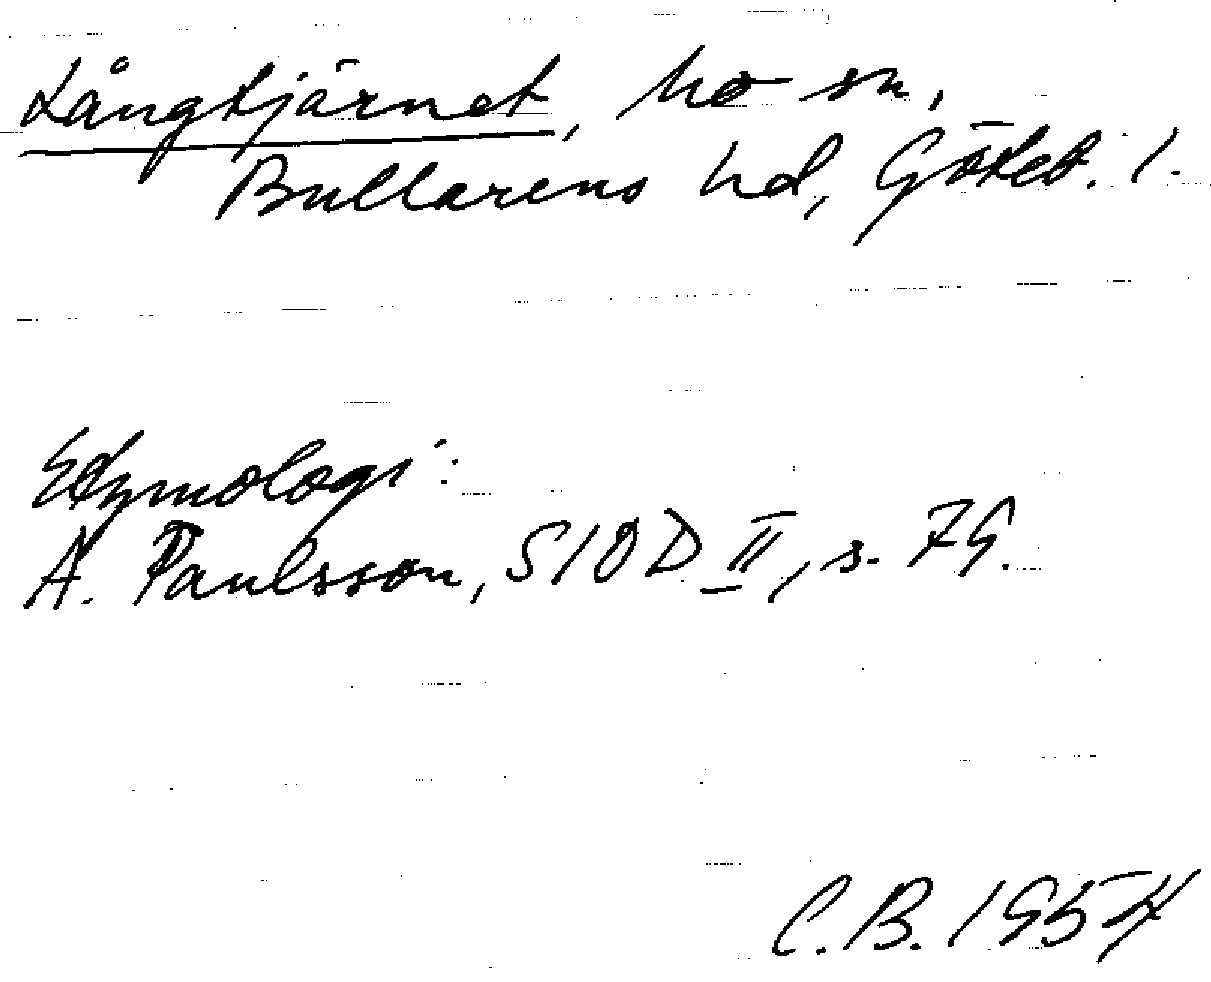 Långtjärnet, Mo sn,
Bullarens hd, Göteb. l.
Etymologi:
A. Paulsson, SIOD II, s. 79.
C.B. 1954